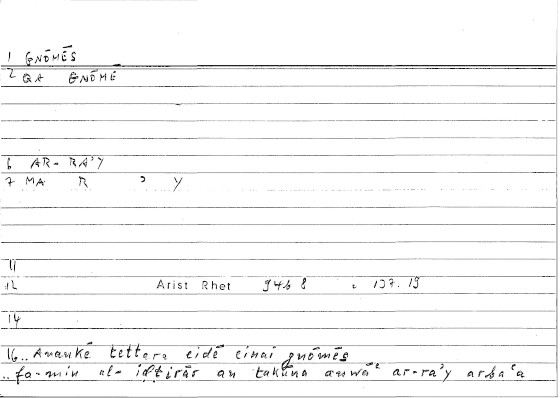 1 GNŌMĒS
2 QA GNŌMĒ
6 AR-RAʾY
7 MA R ʾ Y
11
12 Arist Rhet 94b8 137.19
14
16.. Anankē tettara eidē einai gnōmēs
.. fa-min al-iḍṭirār an takūna anwāʿ ar-raʾy arbaʿa